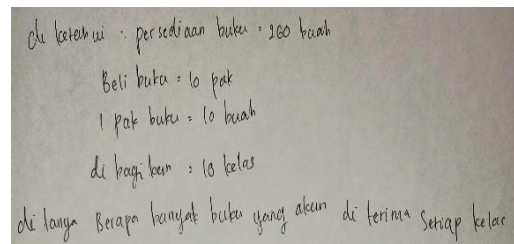 di ketahui : persediaan buku = 260 buah
Beli buku = 10 pak
1 pak buku = 10 buah
di bagi kan = 18 kelas
di tanya Berapa banyak buku yang akan di terima setiap kelas